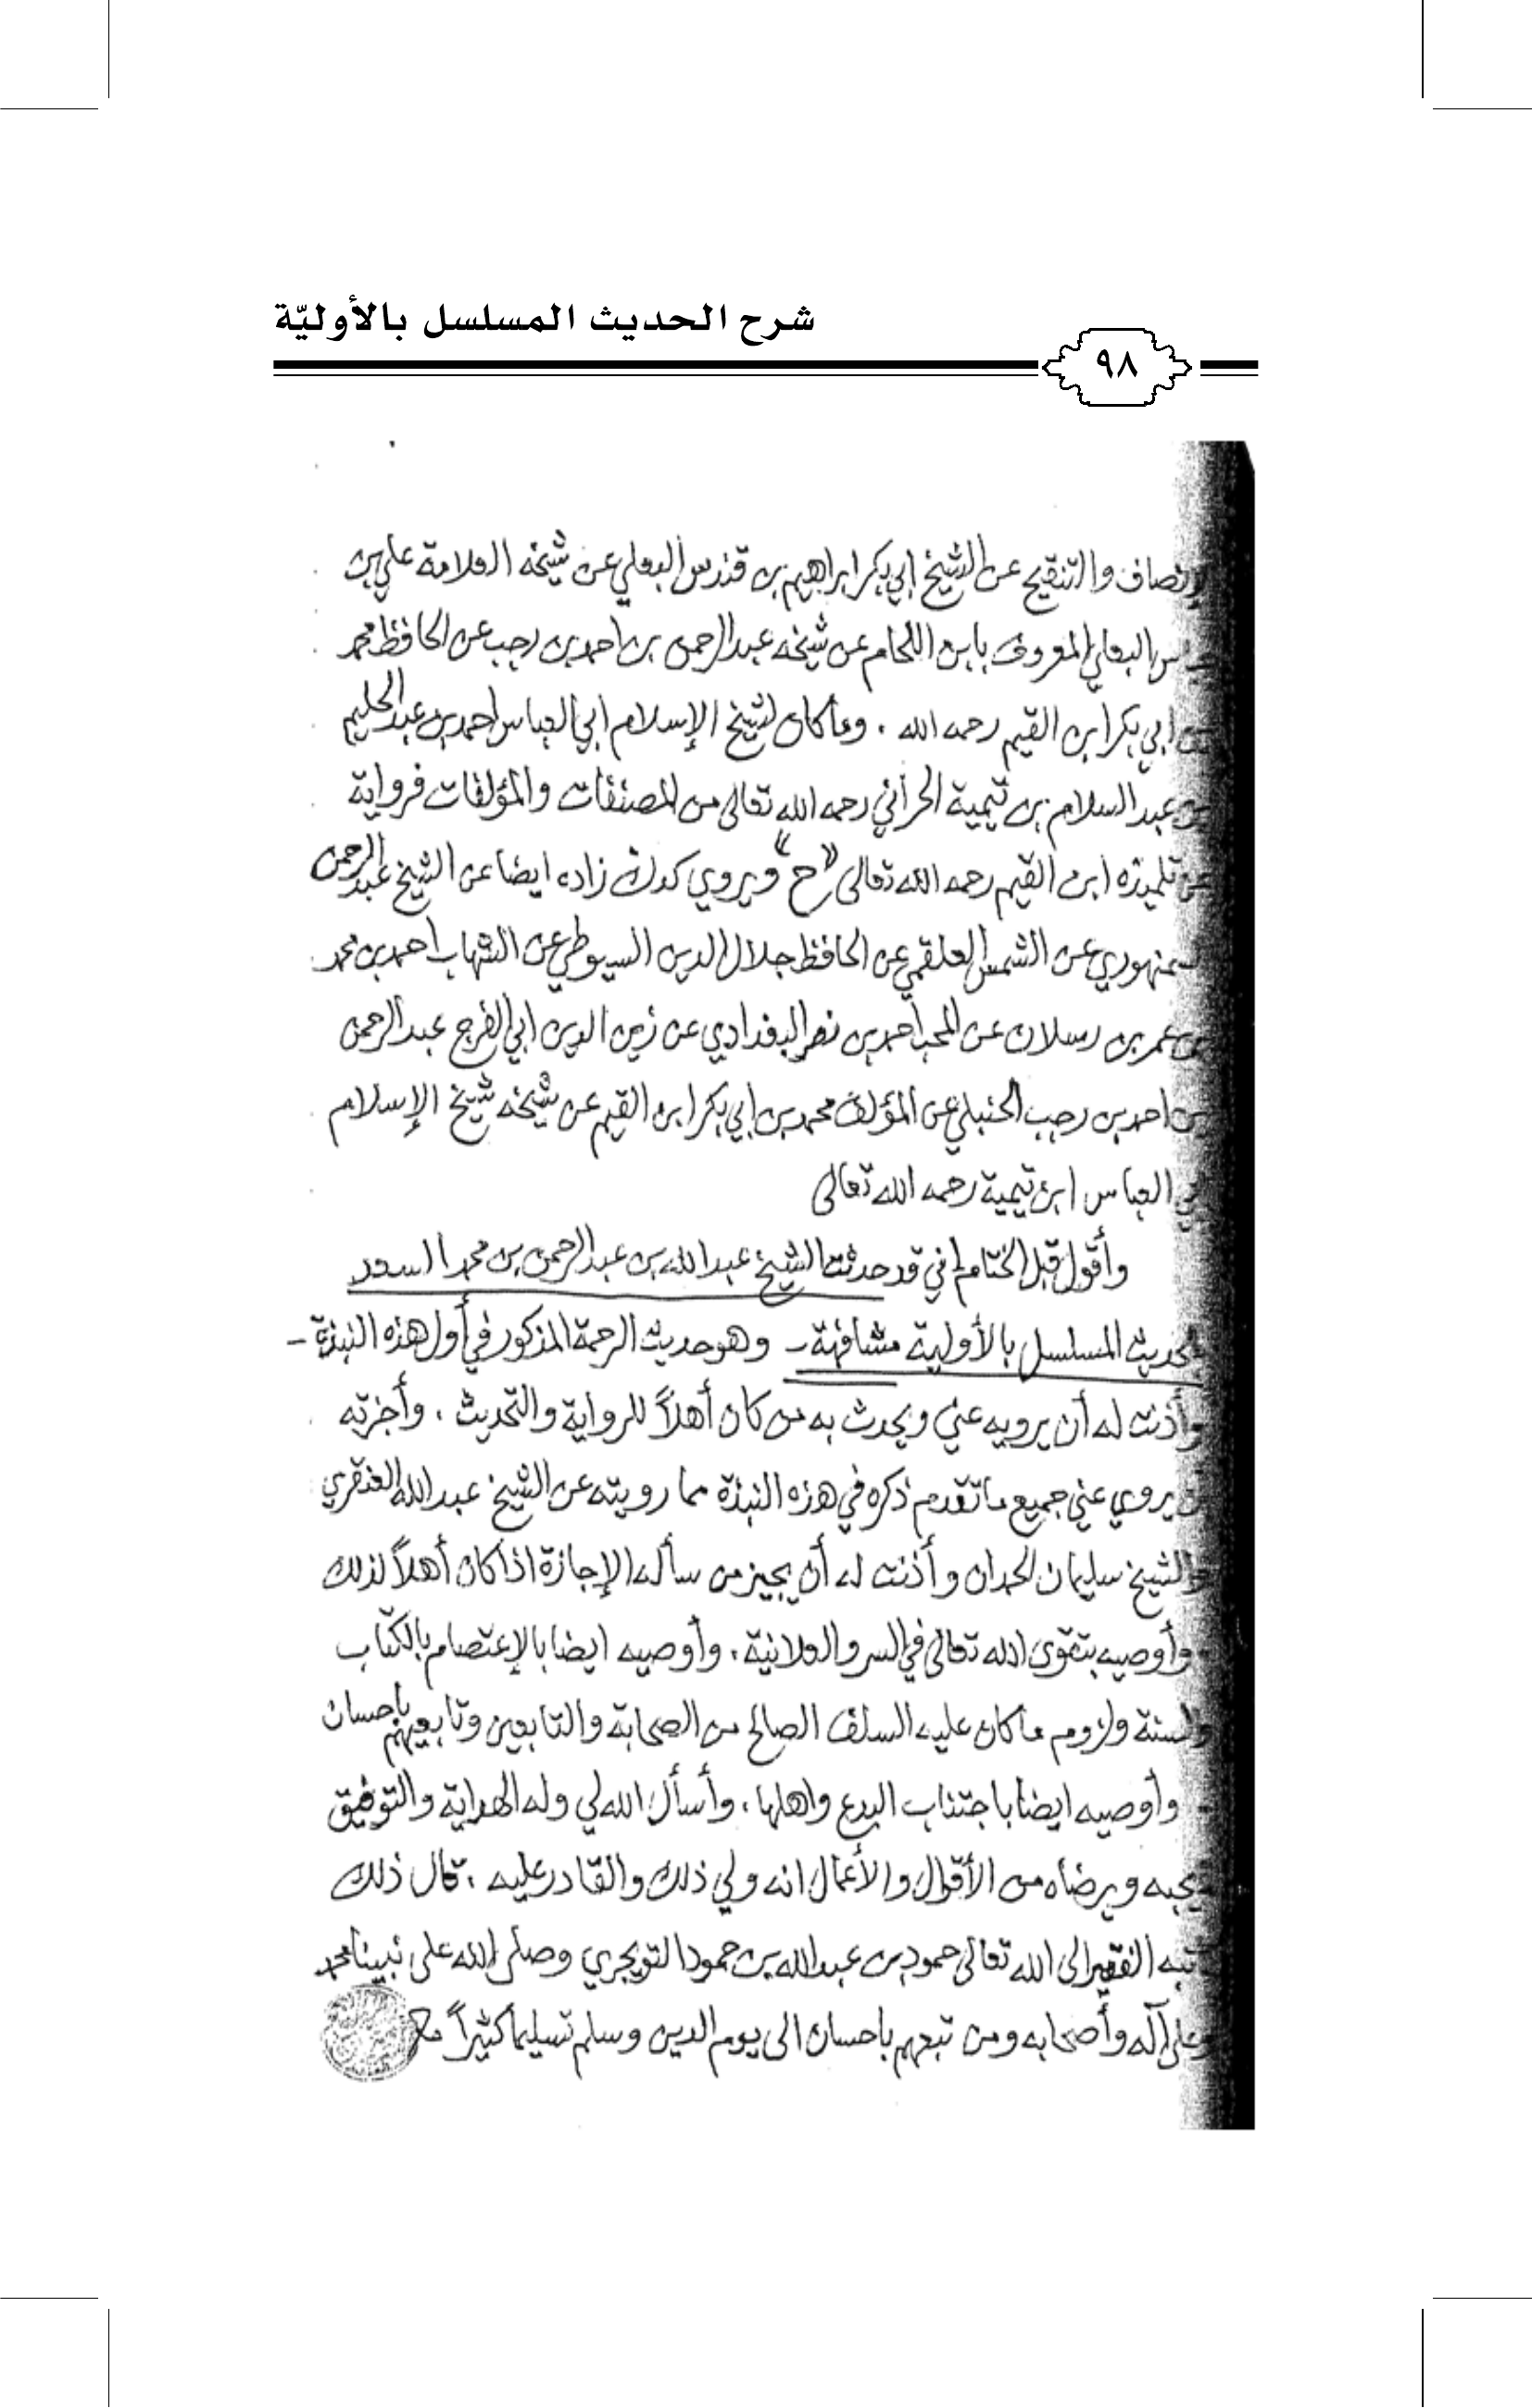 شرح الحديث المسلسل بالأوليّة
٩٨
لإنصاف والتنقيح عن الشيخ ابي بكر ابراهيم بن قندس البعلي عن شيخه العلامة علي بن
البعلي المعروف بابن اللحام عن شيخه عبدالرحمن بن احمد بن رجب عن الحافظ محمد
بن ابي بكر ابن القيم رحمه الله . وما كان لشيخ الإسلام ابي العباس احمد بن عبدالحليم
بن عبدالسلام بن تيمية الحراني رحمه الله تعالى من المصنفات والمؤلفات فرواية
عن تلميذه ابن القيم رحمه الله تعالى "ح" ويروي كدك زاده ايضا عن الشيخ عبدالرحمن
منهوري عن الشمس العلقمي عن الحافظ جلال الدين السيوطي عن الشهاب احمد بن محمد
بن عمر بن رسلان عن المحب احمد بن نصر البغدادي عن زين الدين ابي الفرج عبدالرحمن
بن احمد بن رجب الحنبلي عن المؤلف محمد بن ابي بكر ابن القيم عن شيخه شيخ الإسلام
بي العباس ابن تيمية رحمه الله تعالى
وأقول قبل الختام إني قد حدثت الشيخ عبدالله بن عبدالرحمن بن محمد السعد
لحديث المسلسل بالأولية مشافهة - وهو حديث الرحمة المذكور في أول هذه النبذة -
وأذنت له أن يرويه عني ويحدث به من كان أهلاً للرواية والتحديث ، وأجزته
ن يروي عني جميع ما تقدم ذكره في هذه النبذة مما رويته عن الشيخ عبدالله العنقري
والشيخ سليمان الحمدان وأذنت له أن يجيز من سأله الإجازة اذا كان أهلاً لذلك
وأوصيه بتقوى الله تعالى في السر والعلانية ، وأوصيه ايضا بالإعتصام بالكتاب
والسنة ولزوم ما كان عليه السلف الصالح من الصحابة والتابعين وتابعيهم بإحسان
وأوصيه ايضا باجتناب البدع واهلها ، وأسأل الله لي وله الهداية والتوفيق
يحبه ويرضاه من الأقوال والأعمال انه ولي ذلك والقادر عليه ، قال ذلك
تبه الفقير الى الله تعالى حمود بن عبدالله بن حمود التويجري وصلى الله على نبينا محمد
وعلى آله وأصحابه ومن تبعهم باحسان الى يوم الدين وسلم تسليما كثيراً